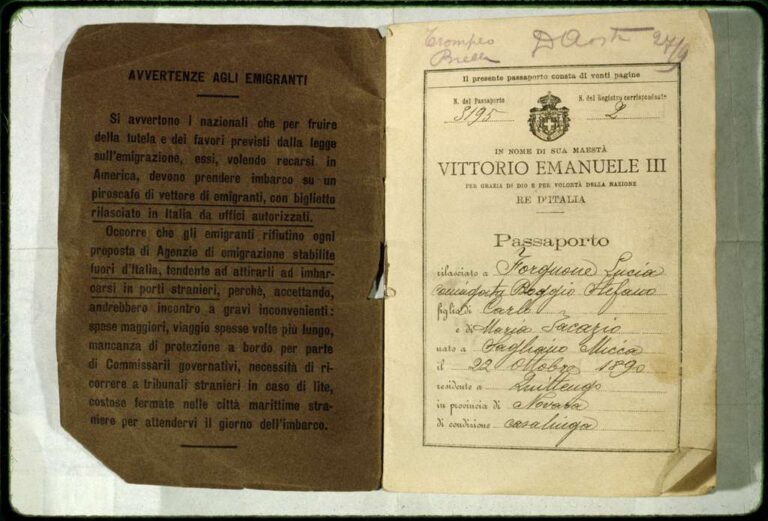 AVVERTENZE AGLI EMIGRANTI
Si avvertono i nazionali che per fruire
della tutela e dei favori previsti dalla legge
sull'emigrazione, essi, volendo recarsi in
America, devono prendere imbarco su un
piroscafo di vettore di emigranti, con biglietto
rilasciato in Italia da uffici autorizzati.
Occorre che gli emigranti rifiutino ogni
proposta di Agenzie di emigrazione stabilite
fuori d'Italia, tendente ad attirarli ad imbar-
carsi in porti stranieri, perchè, accettando,
andrebbero incontro a gravi inconvenienti:
spese maggiori, viaggio spesse volte più lungo,
mancanza di protezione a bordo per parte
di Commissarii governativi, necessità di ri-
correre a tribunali stranieri in caso di lite,
costose fermate nelle città marittime stra-
niere per attendervi il giorno dell'imbarco.
Trompeo D'Aosta 27/9
Biella
Il presente passaporto consta di venti pagine
N. del Passaporto N. del Registro corrispondente
5195 2
IN NOME DI SUA MAESTÀ
VITTORIO EMANUELE III
PER GRAZIA DI DIO E PER VOLONTÀ DELLA NAZIONE
RE D'ITALIA
Passaporto
rilasciato a Forgnone Lucia
coniugata Boggio Stefano
figlia di Carlo
e di Maria
nato a Sagliano Micca
il 22 Ottobre 1890
residente a Quittengo
in provincia di Novara
di condizione casalinga